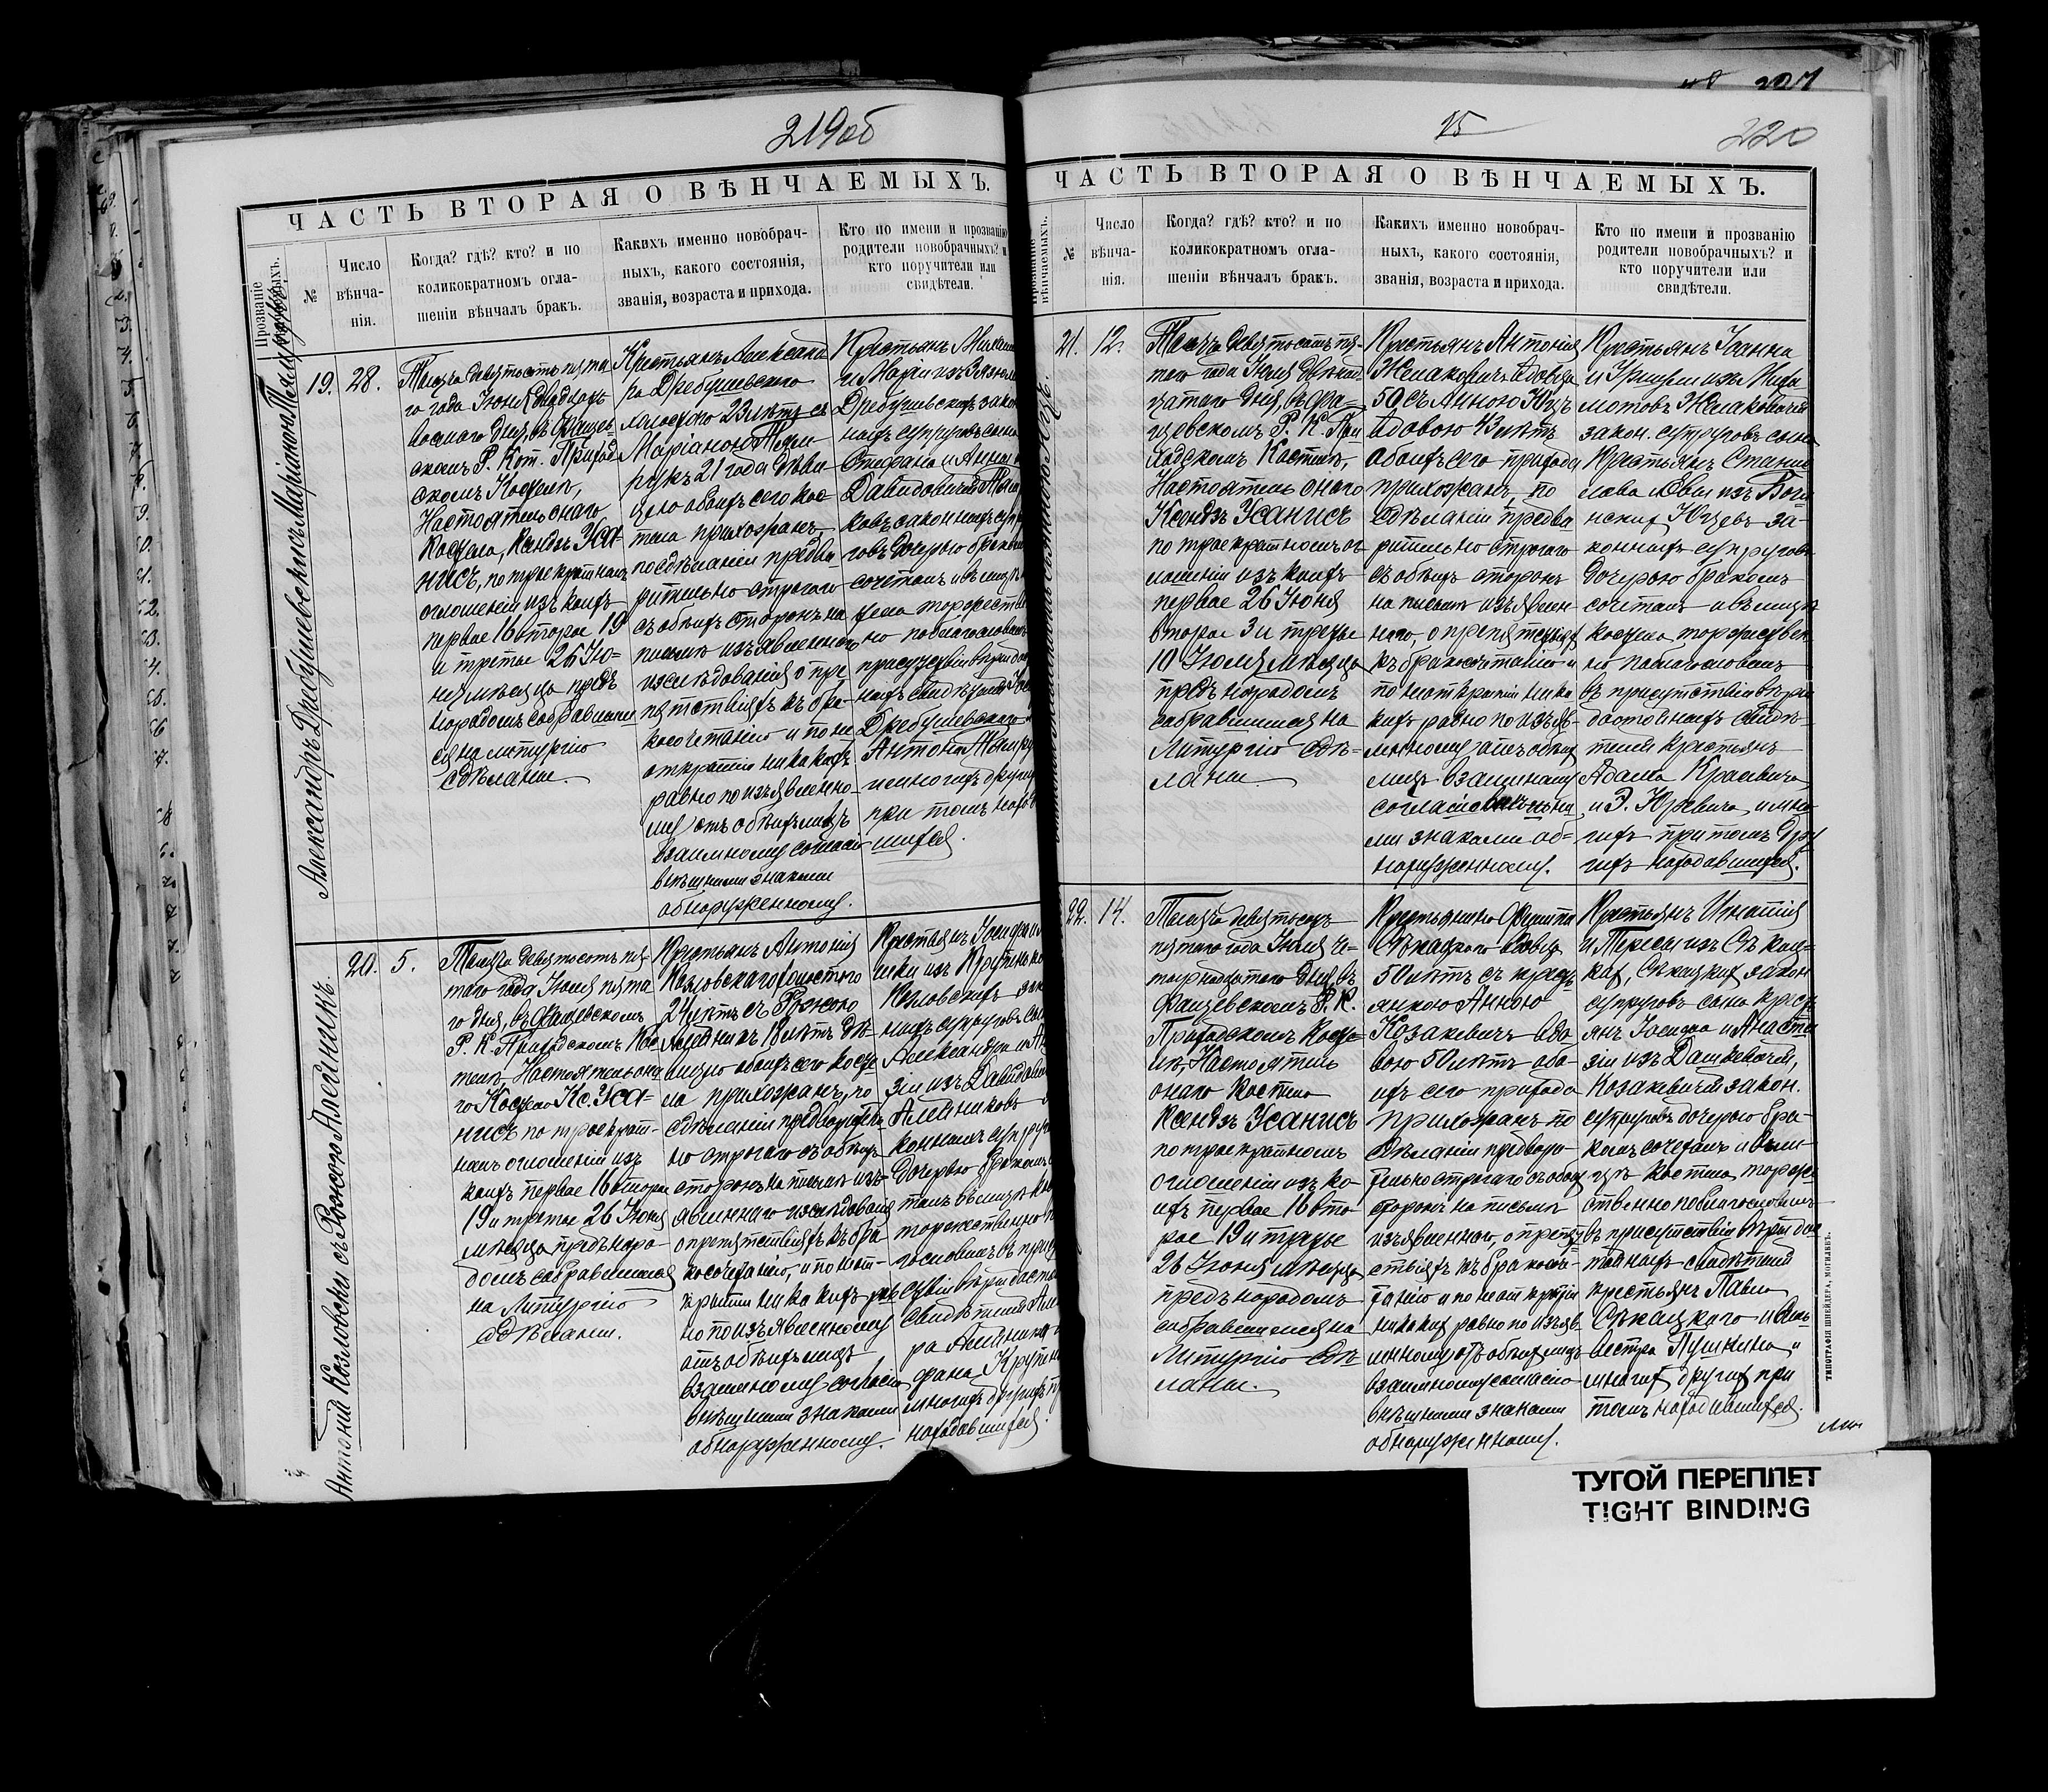 219об
ЧАСТЬ ВТОРАЯ О ВѢНЧАЕМЫХЪ.
Прозваніе вѣнчаемыхъ.
№
Число
вѣнча-
нія.
Когда? гдѣ? кто? и по
коликократномъ огла-
шеніи вѣнчалъ бракъ.
Какихъ именно новобрач-
ныхъ, какого состоянія,
званія, возраста и прихода.
Кто по имени и прозванію
родители новобрачныхъ? и
кто поручители или
свидѣтели.
Александръ Дребушевскій съ Маріанною
19. 28.
Тысяча девятьсотъ пята
го года Іюня двадцать
восьмого дня, въ Фащев-
скомъ Р. Кат. Приход
скомъ Костелѣ,
Настоятель онаго
Костела, Ксендзъ Уса-
нисъ, по троекратномъ
оглошеніи изъ коихъ
первое 16 второе 19
и третье 26 Ію-
ня мѣсяца предъ
народомъ собравшим
ся на литургію
сдѣланн.
Крестьянъ Александ
ра Дребушевскаго
холостого 23 лѣтъ съ
Маріаною
21 года дѣви
цею обоихъ сего кос-
тела прихожанъ,
по сдѣланіи предва-
рительно строгаго
съ обѣихъ сторонъ на
письмѣ изъявленнаго
изслѣдованія о пре
пятствіяхъ къ бра-
косочетанію и по не
открытіи никакихъ
равно по изъявленно-
му отъ обѣихъ лицъ
взаимному согласію
внѣшними знаками
обнаруженному.
Крестьянъ
и Маріи изъ
Дребушевскихъ закон
ныхъ супруговъ сына
Стефана и Анны
Давидовичей
ковъ законныхъ супр
говъ дочерью бракомъ
сочеталъ и въ лицѣ
тела торжествен
но поблагословилъ
присутствіи вѣридос
ныхъ свидѣтелей
Дребушевскаго
Антонія
и многихъ другихъ
при томъ наход
шихся.
Антоній Козловскій съ Розаліею Алейникъ.
20. 5.
Тысяча девятьсотъ пя-
таго года Іюля пята
го дня, въ Фащевскомъ
Р. К. Приходскомъ Кос
телѣ, Настоятель она
го Костела Кс. Уса-
нисъ по троекрат-
номъ оглошеніи изъ
коихъ первое 16 второе
19 и третье 26 Іюня
мѣсяца предъ наро-
домъ собравшимся
на Литургію
сдѣланн.
Крестьянъ Антонія
Козловскаго холостого
24 лѣтъ съ Розаліею
Алейникъ 18 лѣтъ дѣ-
вицею обоихъ сего косте
ла прихожанъ, по
сдѣланіи предварительн
но строгаго съ обѣихъ
сторонъ на письмѣ изъ-
явленнаго изслѣдованія
о препятствіяхъ къ бра
косочетанію, и по неот-
крытіи никакихъ рав
но по изъявленному
отъ обѣихъ лицъ
взаимному согласію
внѣшними знаками
обнаруженному.
Крестьянъ Іосифа и
изъ
Козловскихъ зак
ныхъ супруговъ сы
Александра и
зіи изъ Давидов
Алейниковъ
конныхъ супруг
дочерью бракомъ
талъ въ лицѣ
торжественно
гословилъ въ прис
ствіи вѣридосто
свидѣтелей
ра Алейника
фана
многихъ другихъ
находившихся.
15
220
ЧАСТЬ ВТОРАЯ О ВѢНЧАЕМЫХЪ.
Прозваніе вѣнчаемыхъ.
№
Число
вѣнча-
нія.
Когда? гдѣ? кто? и по
коликократномъ огла-
шеніи вѣнчалъ бракъ.
Какихъ именно новобрач-
ныхъ, какого состоянія,
званія, возраста и прихода.
Кто по имени и прозванію
родители новобрачныхъ? и
кто поручители или
свидѣтели.
21. 12.
Тысяча девятьсотъ пя-
таго года Іюля двѣнад-
цатаго дня, въ Фа-
щевскомъ Р. К. При
ходскомъ Костелѣ,
Настоятель онаго
Ксендзъ Усанисъ
по троекратномъ ог
лошеніи изъ коихъ
первое 26 Іюня
второе 3 и третье
10 Іюля мѣсяца
предъ народомъ
собравшимся на
Литургію сдѣ-
ланн.
Крестьянъ Антонія
Желаковича вдовца
50 съ Анною Юцъ
вдовою 43 лѣтъ
обоихъ сего прихода
прихожанъ, по
сдѣланіи предва
рительно строгаго
съ обѣихъ сторонъ
на письмѣ изъявлен-
наго, о препятствіях
къ бракосочетанію и
по неоткрытіи ника
кихъ равно по изъяв-
ленному отъ обѣихъ
лицъ взаимному
согласію внѣшни
ми знаками об-
наруженному.
Крестьянъ Іоанна
и изъ
Желаковичей
закон. супруговъ сына
Крестьянъ Станис
лава изъ
Юцевъ за-
конныхъ супруговъ
дочерью бракомъ
сочеталъ и въ лицѣ
костела торжествен
но поблагословилъ
въ присутствіи вѣри
достойныхъ свидѣ-
телей крестьянъ
Адама
и Э. Юревича и мно
гихъ при томъ дру
гихъ находившихся.
22. 14.
Тысяча девятьсотъ
пятаго года Іюля че-
тырнадцатаго дня, въ
Фащевскомъ Р. К.
Приходскомъ Косте
лѣ, Настоятель
онаго Костела
Ксендзъ Усанисъ
по троекратномъ
оглошеніи изъ ко-
ихъ первое 16 вто-
рое 19 и третье
26 Іюня мѣсяца
предъ народомъ
собравшимся на
Литургію сдѣ
ланн.
вдовца
50 лѣтъ съ крест
янкою Анною
Козакевичъ вдо
вою 50 лѣтъ обо
ихъ сего прихода
прихожанъ по
сдѣланіи предвари-
тельно строгаго съ обѣих
сторонъ на письмѣ
изъявленного, о препят
ствіяхъ къ бракосоче-
танію и по неоткрытіи
никакихъ равно по изъяв-
ленному отъ обѣихъ лицъ
взаимному согласію
внѣшними знаками
обнаруженному.
Крестьянъ Игнатія
и Терезы изъ
закон
супруговъ сына крест
янъ Іосифа и Анаста
зіи изъ Дашкевичей,
Козакевичей закон.
супруговъ дочерью бра-
комъ сочеталъ и въ ли-
цѣ костела торже
ственно поблагословилъ
въ присутствіи вѣридос
тойныхъ свидѣтелей
крестьянъ Павла
и Силь
вестра Пушкина и
многихъ другихъ при
томъ находившихся.
ТИПОГРАФІЯ ШНЕЙДЕРА, МОГИЛЕВЪ.
ТУГОЙ ПЕРЕПЛЕТ
TIGHT BINDING